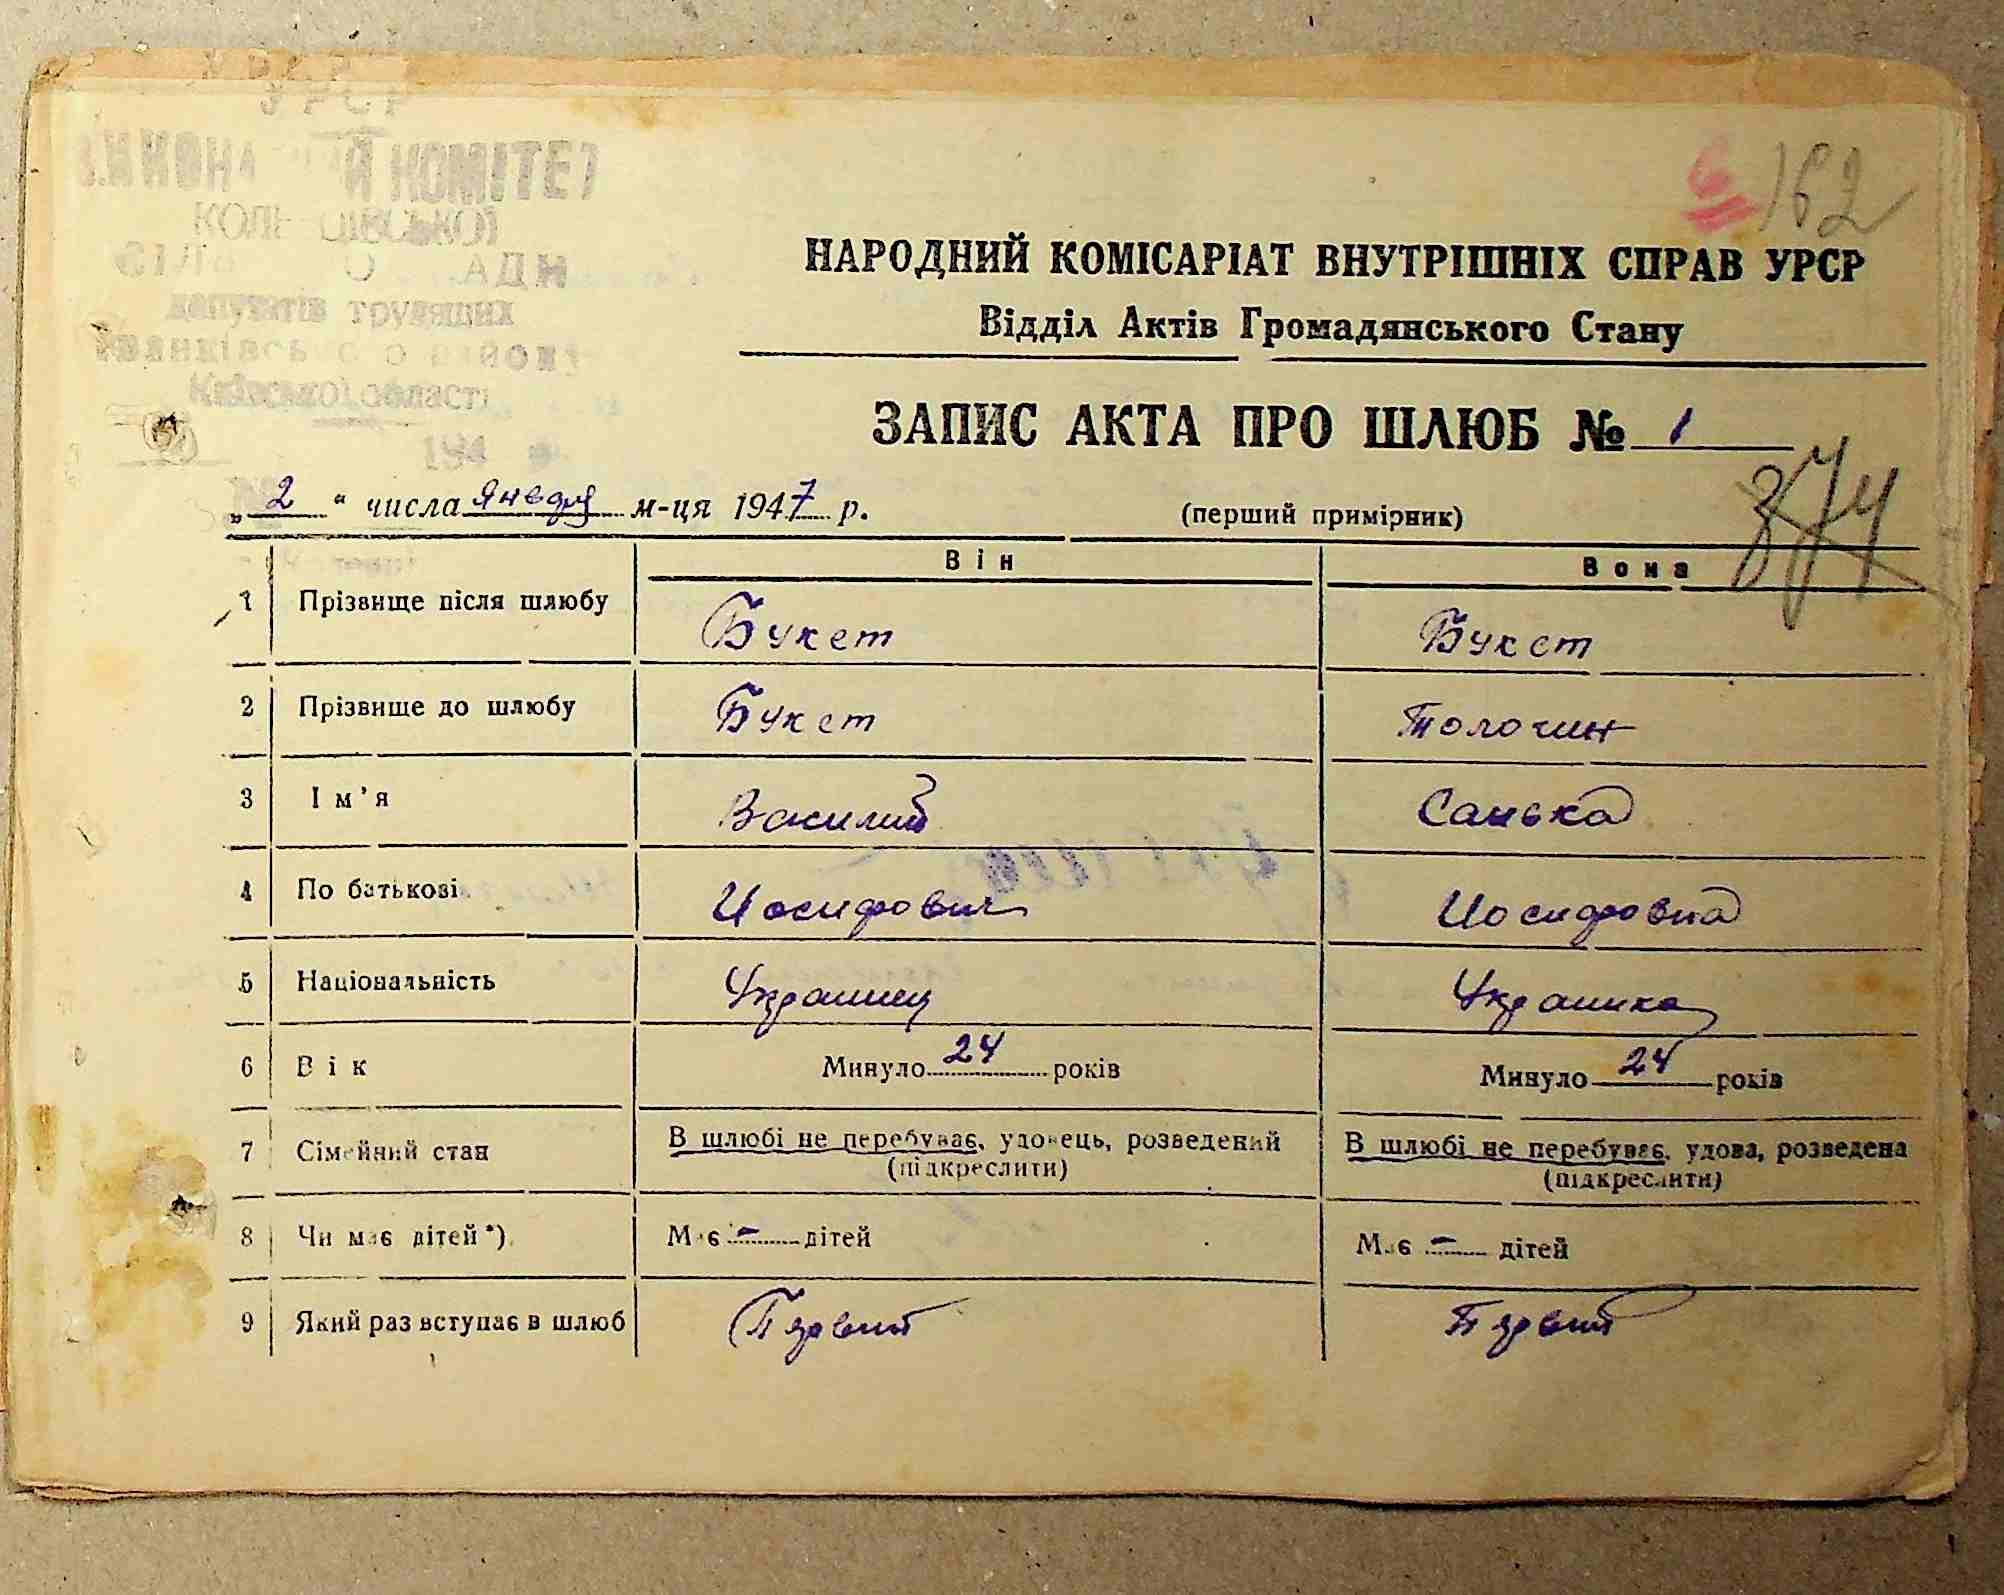 УРСР
КОМІТЕТ
депутатів трудящих
Київської області
194
6 162
НАРОДНИЙ КОМІСАРІАТ ВНУТРІШНІХ СПРАВ УРСР
Відділ Актів Громадянського Стану
ЗАПИС АКТА ПРО ШЛЮБ № 1
374
„ 2 “ числа января м-ця 1947 р. (перший примірник)
Він Вона
1 Прізвище після шлюбу Букет Букет
2 Прізвище до шлюбу Букет Толочин
3 Ім'я Василий Санька
4 По батькові Иосифович Иосифовна
5 Національність Украинец Украинка
6 Вік Минуло 24 років Минуло 24 років
7 Сімейний стан В шлюбі не перебуває, удовець, розведений В шлюбі не перебуває, удова, розведена
(підкреслити) (підкреслити)
8 Чи має дітей*) Має - дітей Має - дітей
9 Який раз вступає в шлюб Первый Первый